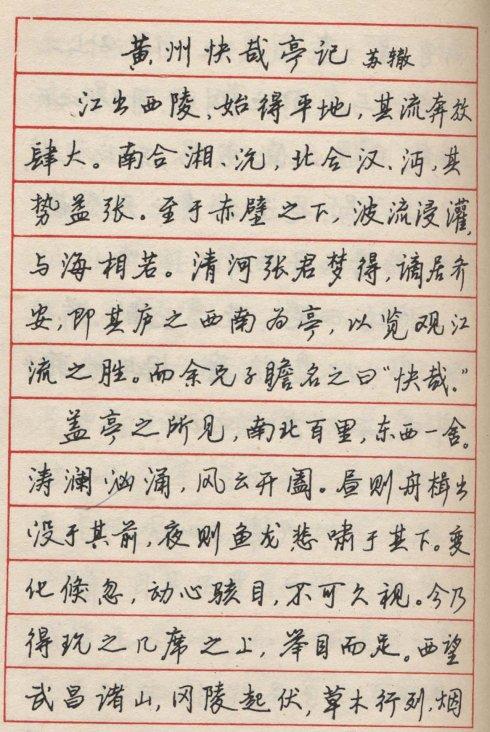 黄州快哉亭记 苏辙
江出西陵,始得平地,其流奔放
肆大。南合湘、沅,北合汉、沔,其
势益张。至于赤壁之下,波流浸灌,
与海相若。清河张君梦得,谪居齐
安,即其庐之西南为亭,以览观江
流之胜。而余兄子瞻名之曰“快哉。”
盖亭之所见,南北百里,东西一舍。
涛澜汹涌,风云开阖。昼则舟楫出
没于其前,夜则鱼龙悲啸于其下。变
化倏忽,动心骇目,不可久视。今乃
得玩之几席之上,举目而足。西望
武昌诸山,冈陵起伏,草木行列,烟